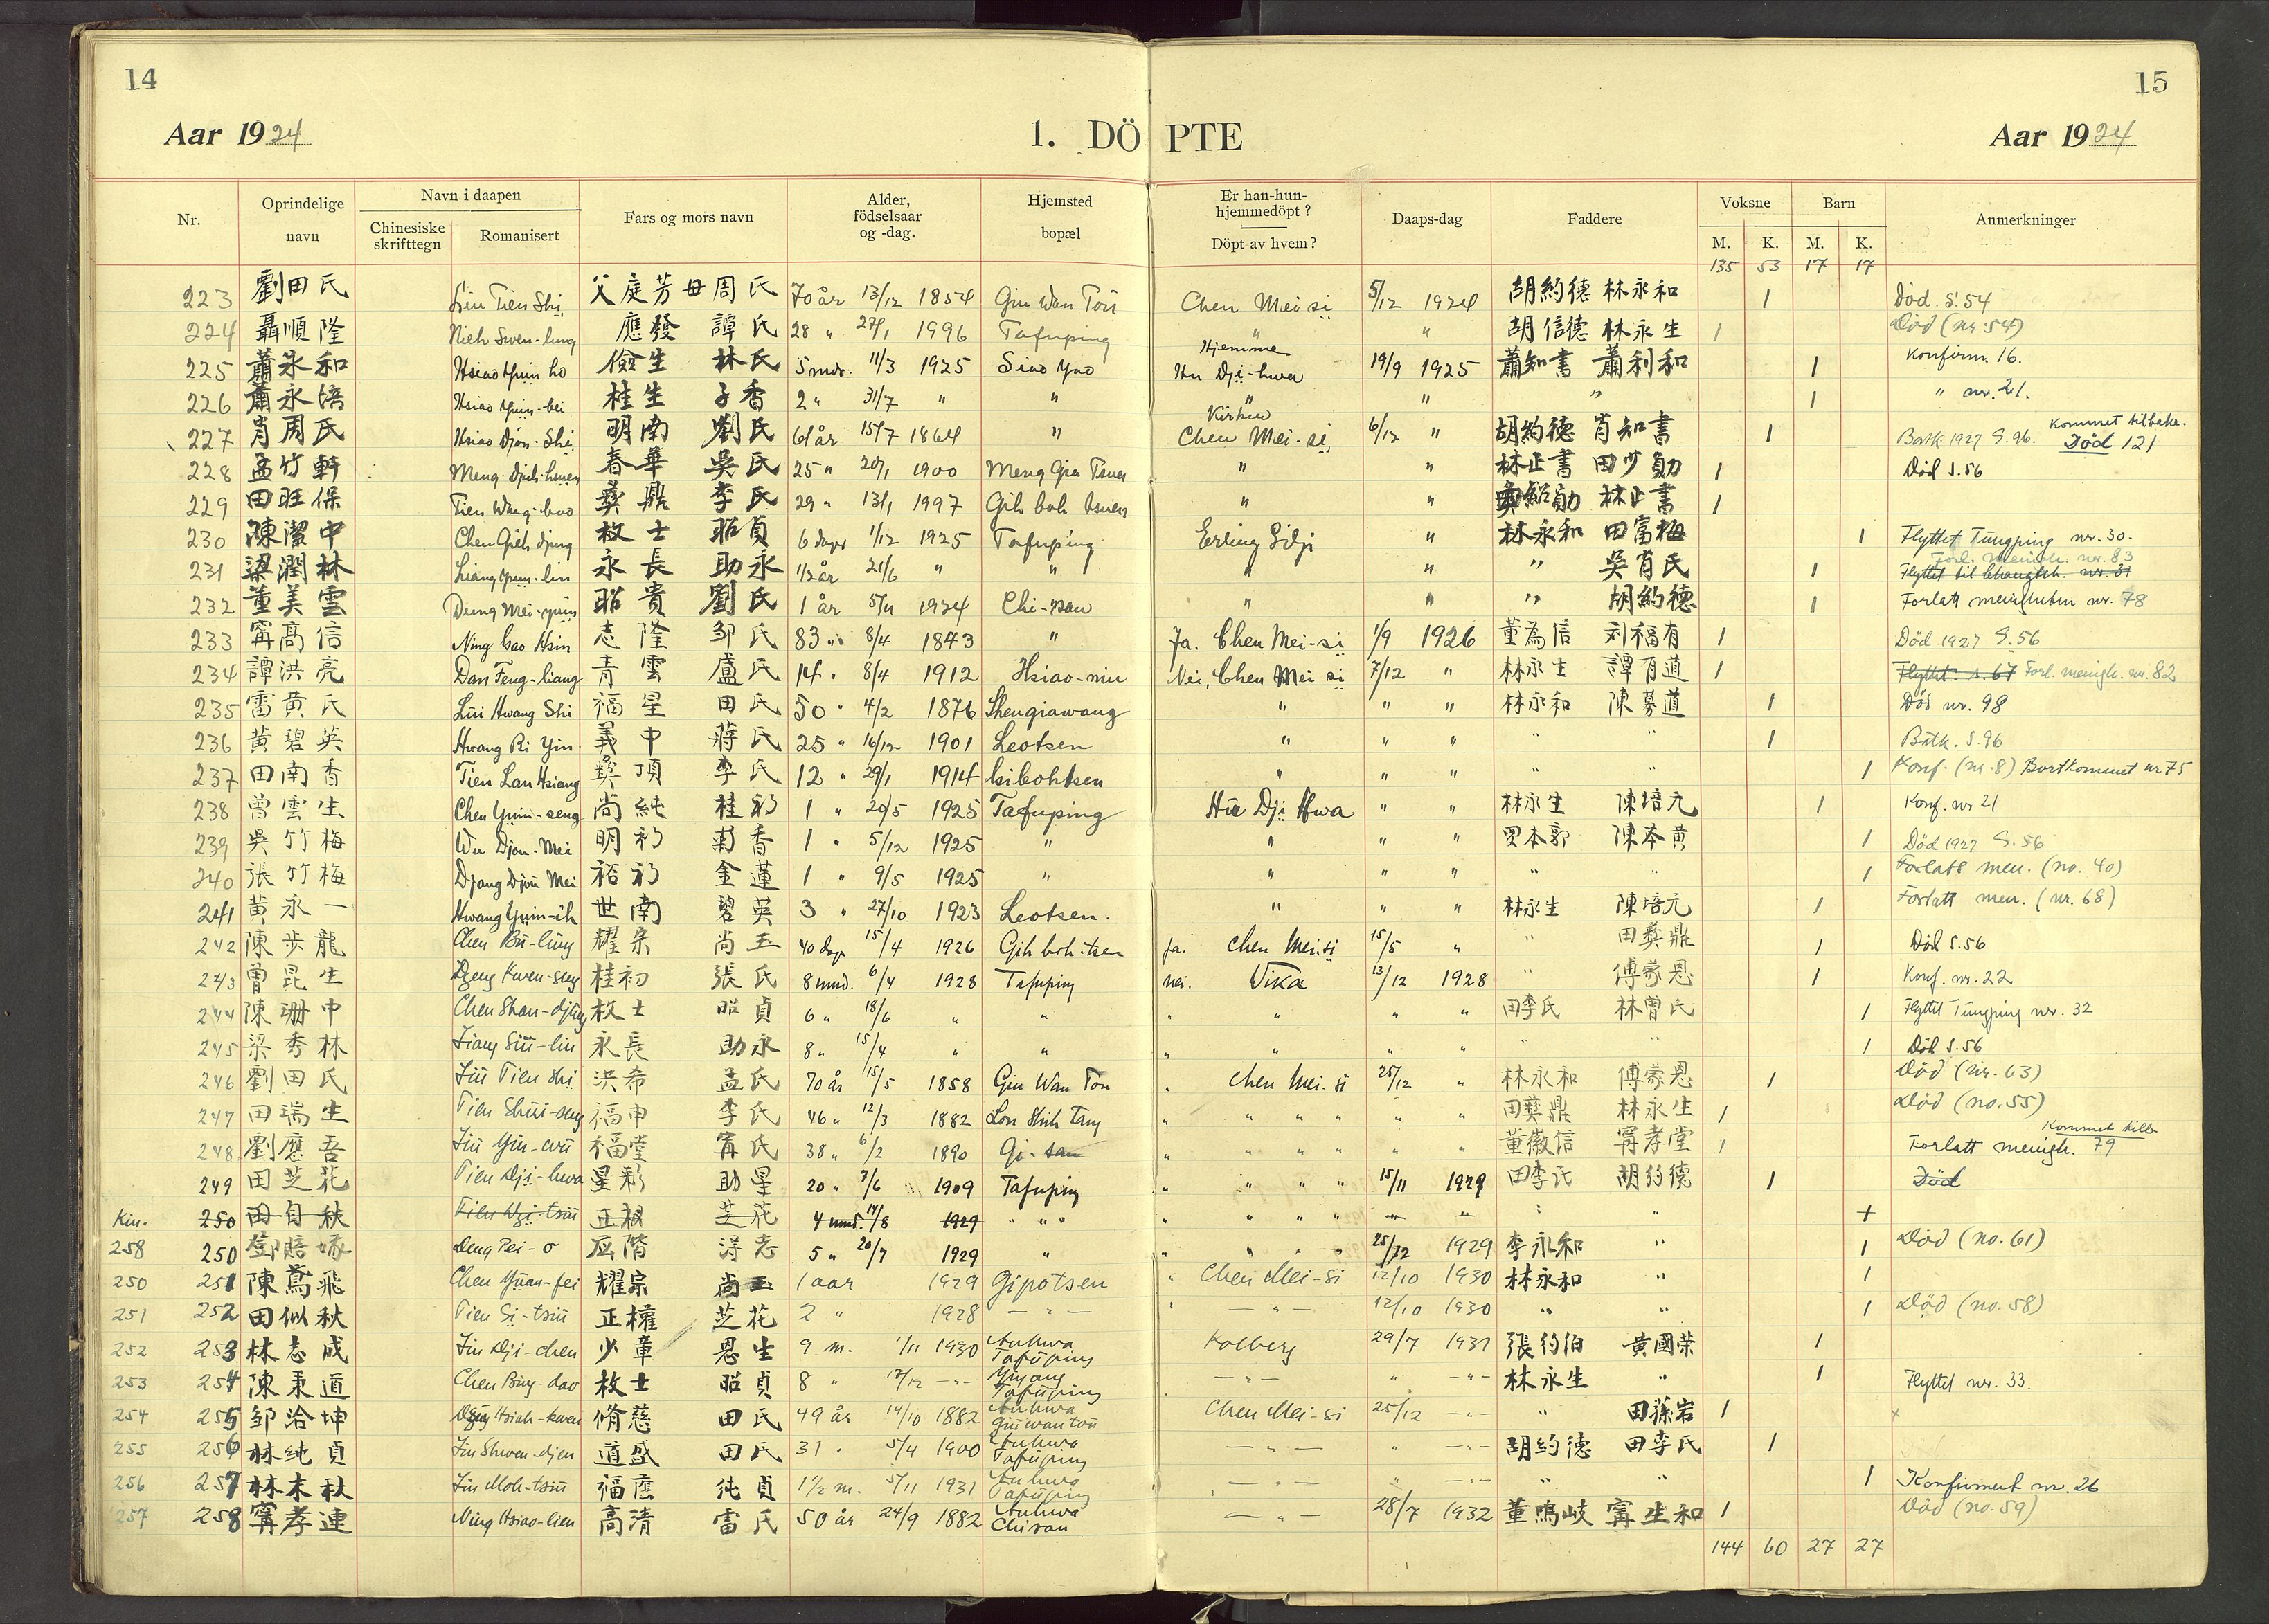 14
15
Aar 1924
1. DÖPTE
Aar 1924
Nr.
Oprindelige navn
Navn i daapen
Chinesiske skrifttegn
Romanisert
Fars og mors navn
Alder, födselsaar og -dag.
Hjemsted bopæl
Er han-hun-hjemmedöpt?
Döpt av hvem?
Daaps-dag
Faddere
Voksne
Barn
M. K. M. K.
Anmerkninger
135 53 17 17
223 劉田氏 Liu Tien Shi 父庭芳母周氏 70 år 13/12 1854 Giu Wan Tou Chen Mei si 5/12 1924 胡約德 林永和 1 Död. S. 54
224 聶順隆 Nieh Swen-lung 應發 譚氏 28 " 27/1 1996 Tafuping " " 胡信德 林永生 1 Död (nr 54)
225 蕭永和 Hsiao Yuin ho 儉生 林氏 5 mdr. 11/3 1925 Siao Yao Hjemme Hu Dji-hwa 19/9 1925 蕭知書 蕭利和 1 Konfirm. 16.
226 蕭永培 Hsiao Yuin-bei 桂生 子香 2 " 31/7 " " " " " 1 " nr. 21.
227 肖周氏 Hsiao Djou-Shi 明南 劉氏 61 år 15/7 1864 " Kirken Chen Mei-si 6/12 " 胡約德 肖知書 1 Bortk 1927 S. 96. Kommet tilbake. Död 121
228 孟竹軒 Meng Djuh-hsuen 春華 吳氏 25 " 20/1 1900 Meng Gia Tsuen " " 林正書 田少勛 1 Död S. 56
229 田旺保 Tien Wang-bao 彝鼎 李氏 29 " 13/1 1997 Gih boh tsuen " " 紹勛 林正書 1
230 陳潔中 Chen Gieh djung 枚士 昭貞 6 dager 1/12 1925 Tafuping Erling Gilje " 林永和 田富梅 1 Flyttet Tungping nr. 30.
231 梁潤林 Liang Yuin-lin 永長 助永 1/2 år 21/6 " " " " " 吳肖氏 1 Forl. menigh. nr. 83 Flyttet til Changteh. nr. 31
232 董美雲 Dung Mei-yuin 昭貴 劉氏 1 år 5/11 1924 Chi-san " " " 胡約德 1 Forlatt menigheten nr. 78
233 甯高信 Ning Gao Hsin 志隆 邹氏 83 " 8/4 1843 " Ja. Chen Mei-si 1/9 1926 董為信 刘福有 1 Död 1927 S. 56
234 譚洪亮 Dan Feng-liang 青雲 盧氏 14 " 8/4 1912 Hsiao-niu Nei, Chen Mei si 7/12 " 林永生 譚有道 1 Flyttet. s. 67 Forl. menigh. nr. 82
235 雷黄氏 Lui Hwang Shi 福星 田氏 50 " 4/2 1876 Shengiawang " " " 林永和 陳募道 1 Död nr. 98
236 黄碧英 Hwang Bi Yin 義中 蔣氏 25 " 16/12 1901 Leotsen " " " " " 1 Bortk. S. 96
237 田南香 Tien Lan Hsiang 彝頂 李氏 12 " 29/1 1914 Gibohtsen " " " " " 1 Konf. (nr. 8) Bortkommet nr 75
238 曾雲生 Chen Yuin-seng 尚純 桂初 1 " 20/5 1925 Tafuping Hu Dji Hwa " " 林永生 陳培元 1 Konf. nr 21
239 吳竹梅 Wu Djou-Mei 明初 菊香 1 " 5/12 1925 " " " " 罗本郭 陳本黄 1 Död 1927 S. 56
240 張竹梅 Djang Djou Mei 裕初 金蓮 1 " 9/5 1925 " " " " " " 1 Forlatt men. (no. 40)
241 黄永一 Hwang Yuin-ih 世南 碧英 3 " 27/10 1923 Leotsen. " " " 林永生 陳培元 1 Forlatt men. (nr. 68)
242 陳步龍 Chen Bu-lung 耀宗 尚玉 40 dage 15/4 1926 Gih boh-tsen ja. Chen Mei si 15/5 " " 田彝鼎 1 Död S. 56
243 曾昆生 Dzeng Kwen-seng 桂初 張氏 8 mnd. 6/4 1928 Tafuping nei. Wika 13/12 1928 " 傅蒙恩 1 Konf. nr. 22
244 陳珊中 Chen Shan-djung 枚士 昭貞 6 " 18/6 " " " " " " 田李氏 林曾氏 1 Flyttet Tungping nr. 32
245 梁秀林 Liang Siu-lin 永長 助永 8 " 15/4 " " " " " " " " 1 Död S. 56
246 劉田氏 Liu Tien Shi 洪希 孟氏 70 år 15/5 1858 Giu Wan Tou " Chen Mei-si 25/12 " 林永和 傅蒙恩 1 Död (nr. 63)
247 田瑞生 Tien Shui-seng 福申 李氏 46 " 12/3 1882 Lou Shih Tang " " " " " " 田彝鼎 林永生 1 Död (no. 55)
248 劉應吾 Liu Yin-wu 福堂 甯氏 38 " 6/2 1890 Gi-san " " " " " " 董徽信 甯孝堂 1 Forlatt menigh. 79 Kommet tilb
249 田芝花 Tien Dji-hwa 星彩 助星 20 " 7/6 1909 Tafuping " " " " 15/11 1929 田李氏 胡約德 1 Död
Kin. 250 田自秋 Tien Dzi-tsiu 正權 芝花 4 mnd. 14/8 1929 " " " " " " " " " " " +
258 250 鄧賠娥 Deng Pei-o 應階 淂志 5 " 20/7 1929 " " " " " 25/12 1929 李永和 " 1 Död (no. 61)
250 251 陳鳶飛 Chen Yüan-fei 耀宗 尚玉 1 aar 1929 Gipotsen " Chen Mei-si 12/10 1930 林永和 " 1
251 252 田似秋 Tien Si-tsiu 正權 芝花 2 " 1928 — " — " — " — 12/10 1930 " " 1 Död (no. 58)
252 253 林志成 Lin Dji-chen 少章 恩生 9 m. 1/11 1930 Anhwa Tafuping Kolberg 29/7 1931 張約伯 黄國荣 1
253 254 陳秉道 Chen Bing-dao 枚士 昭貞 8 " 17/12 — " — Yiyang Tafuping — " — " — " — 林永生 " 1 Flyttet nr. 33.
254 255 邹洽坤 Hsiah-kwen 脩慈 田氏 49 år 14/10 1882 Anhwa Giuwantou Chen Mei-si 25/12 — " — " 田蓀岩 1
255 256 林纯貞 Lin Shwen-djen 道盛 田氏 31 " 5/4 1900 Anhwa Tafuping — " — " — " — 胡約德 田李氏 1
256 257 林末秋 Lin Moh-tsiu 福應 纯貞 1 1/2 m. 5/11 1931 Anhwa Tafuping — " — " — " — " " 1 Konfirmert nr. 26
257 258 甯孝連 Ning Hsiao-lien 高清 雷氏 50 år 24/9 1882 Anhwa Chisan — " — 28/7 1932 董鳴岐 甯生和 1 Död (no. 59)
144 60 27 27